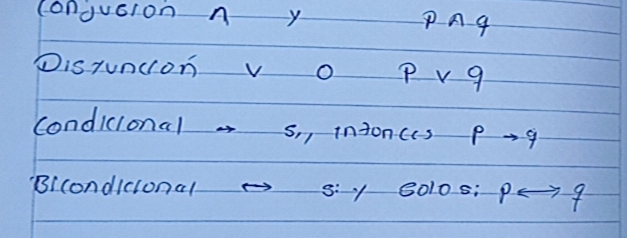 Conjución ∧ y p ∧ q
Disyunción ∨ o p ∨ q
Condicional → si,, entonces p → q
Bicondicional ↔ si y solo si p ↔ q